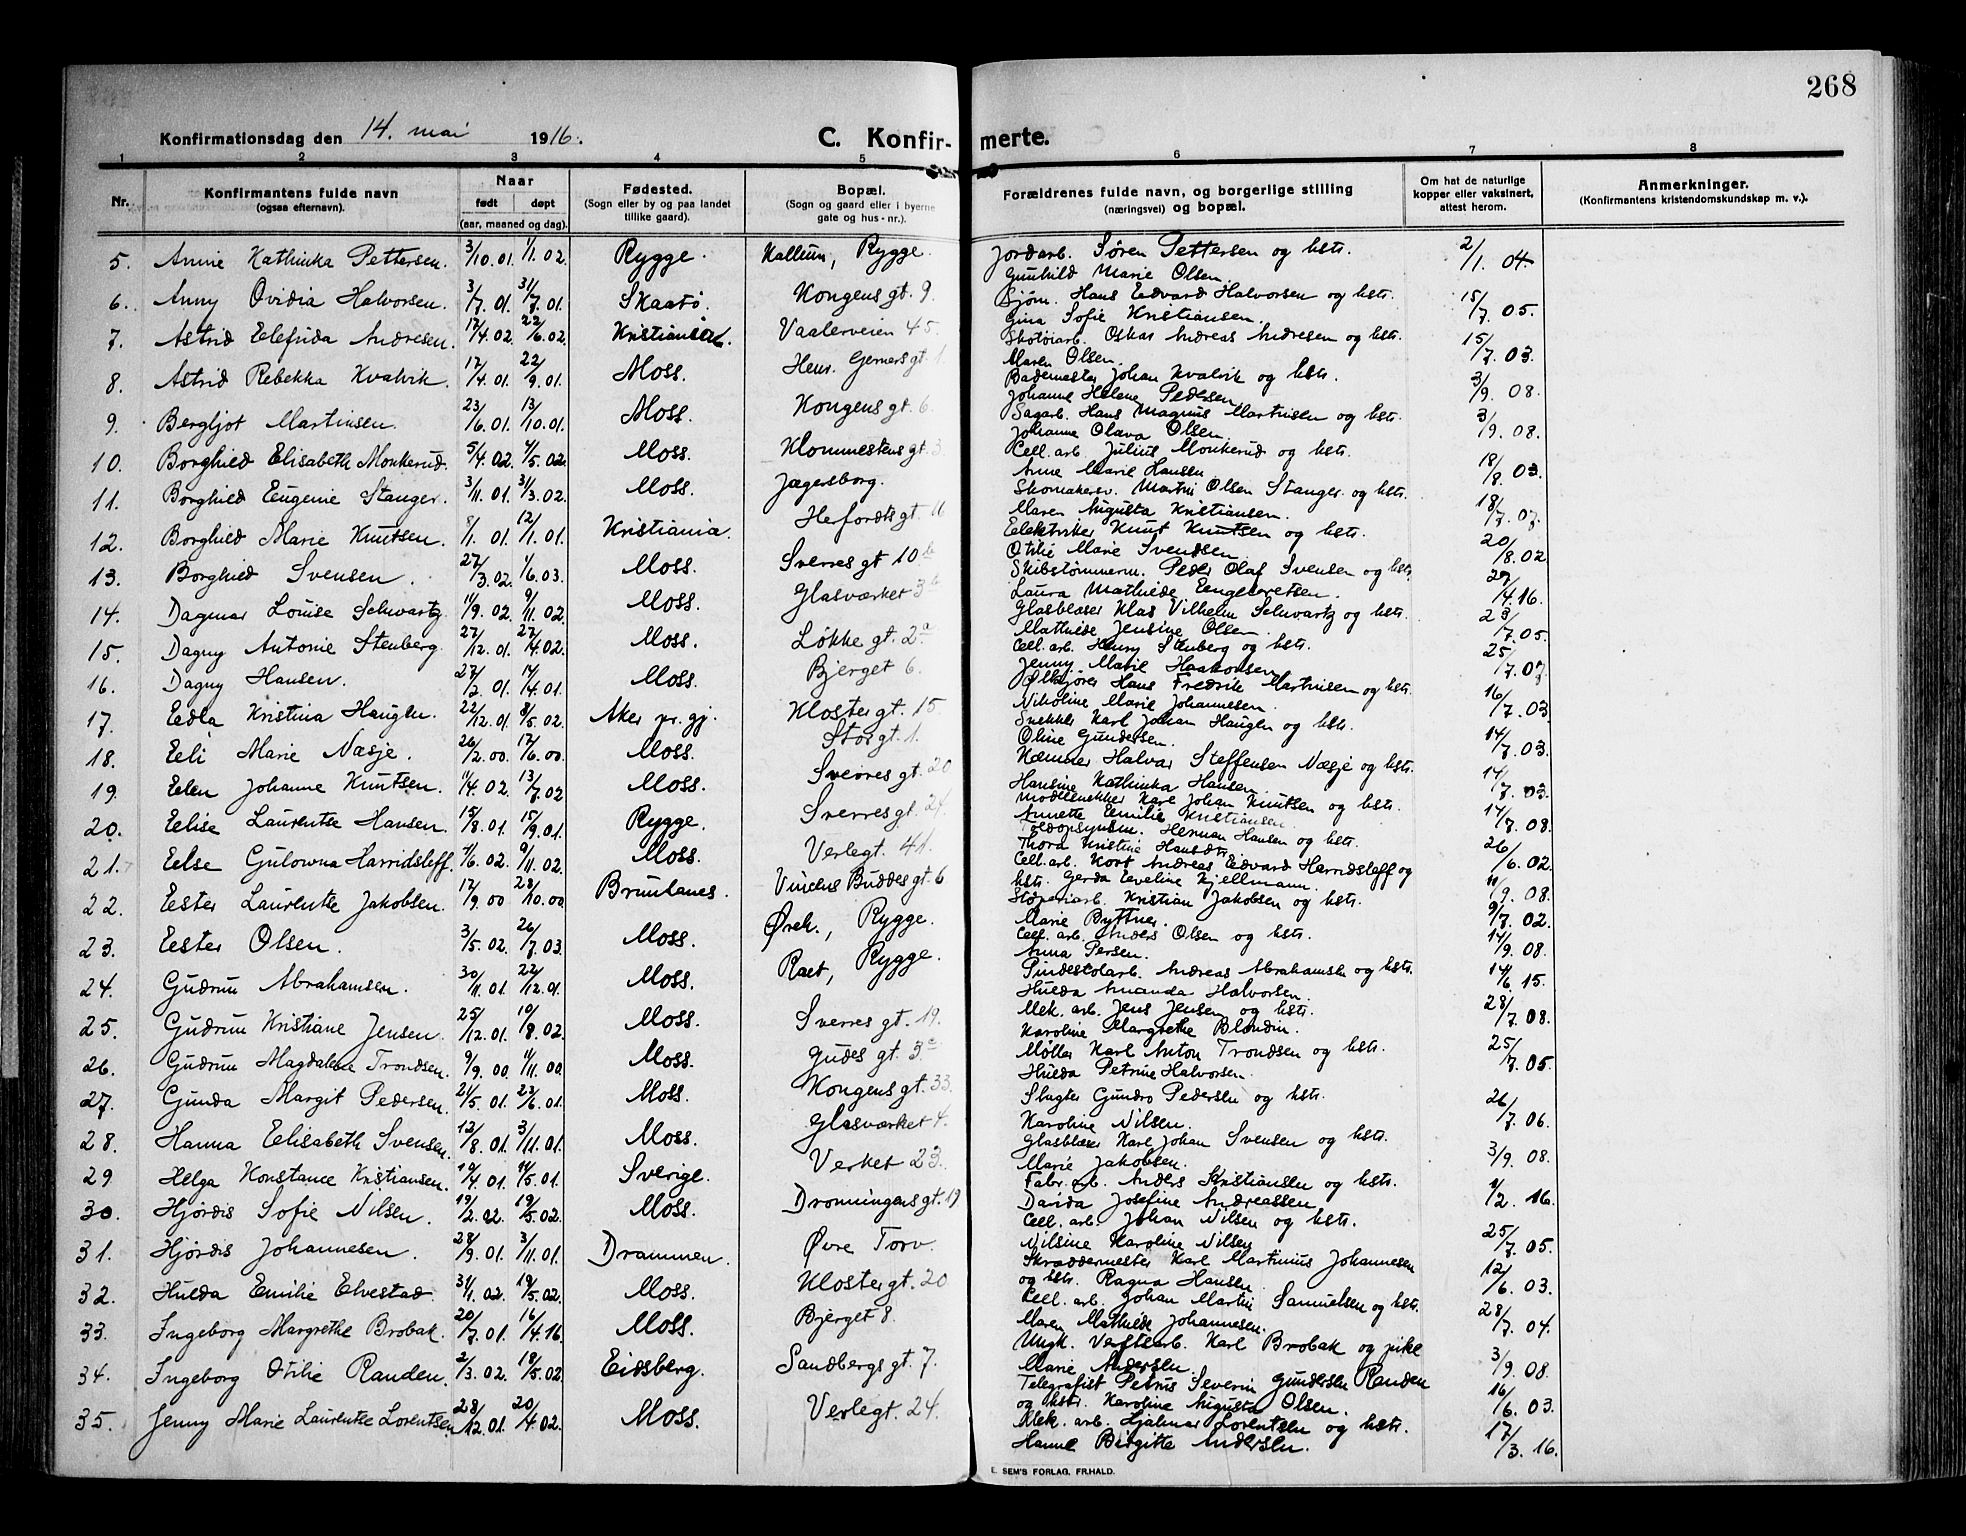 268
Konfirmationsdag den 14. mai 1916.
C. Konfirmerte.
1 2 3 4 5 6 7 8
Nr.
Konfirmantens fulde navn
(ogsaa efternavn).
Naar
født døpt
(aar, maaned og dag).
Fødested.
(Sogn eller by og paa landet
tillike gaard).
Bopæl.
(Sogn og gaard eller i byerne
gate og hus-nr.).
Forældrenes fulde navn, og borgerlige stilling
(næringsvei) og bopæl.
Om hat de naturlige
kopper eller vaksinert,
attest herom.
Anmerkninger.
(Konfirmantens kristendomskundskap m. v.).
5. Annie Kathinka Pettersen. 3/10.01. 1/1.02. Rygge. Kallum, Rygge. Jordarb. Søren Pettersen og hstr. 2/1.04.
Gunhild Marie Olsen.
6. Anny Ovidia Halvorsen. 3/7.01. 31/7.01. Skaatø. Kongens gt. 9. Sjøm. Hans Edvard Halvorsen og hstr. 15/7.05.
Gina Sofie Kristiansen.
7. Astrid Elefrida Andresen. 17/4.02. 22/6.02. Kristiania. Vaalerveien 45. Skotøiarb. Oskar Andreas Andresen og hstr. 15/7.03.
Maren Olsen.
8. Astrid Rebekka Kvalvik. 17/4.01. 22/9.01. Moss. Henr. Gerners gt. 1. Bademester Johan Kvalvik og hstr. 3/9.08.
Johanne Helene Pedersen.
9. Bergljot Martinsen. 23/6.01. 13/10.01. Moss. Kongens gt. 6. Sagarb. Hans Magnus Martinsen og hstr. 3/9.08.
Johanne Olava Olsen.
10. Borghild Elisabeth Monkerud. 5/4.02. 4/5.02. Moss. Klommestens gt. 3. Cell. arb. Julius Monkerud og hstr. 18/8.03.
Anne Marie Hansen
11. Borghild Eugenie Stanger. 3/11.01. 31/3.02. Moss. Jægersborg. Skomakersv. Martin Olsen Stanger og hstr. 18/7.07.
Maren Augusta Kristiansen.
12. Borghild Marie Knutsen. 8/1.01. 12/1.01. Kristiania. Herfordts gt. 11. Elektriker Knut Knutsen og hstr. 20/8.02
Otilie Marie Svendsen
13. Borghild Svensen. 27/3.02. 1/6.03. Moss. Sverres gt 10b Skibstømmerm. Peder Olaf Svensen og hstr. 27/4.16.
Laura Mathilde Engebretsen.
14. Dagmar Louise Schwartz. 11/9.02. 9/11.02. Moss. Glasværket 3b Glasblæser Klas Vilhelm Schwartz og hstr. 23/7.05.
Mathilde Jensine Olsen.
15. Dagny Antonie Stenberg. 27/12.01. 27/4.02. Moss. Løkke gt. 2a Cell. arb. Henry Stenberg og hstr. 25/7.07
Jenny Marie Haakonsen.
16. Dagny Hansen. 27/2.01. 14/4.01. Moss. Bjerget 6. Ølkjører Hans Fredrik Martinsen og hstr. 16/7.03
Nikoline Marie Johannesen.
17. Edla Kristina Haugen. 22/12.01. 8/5.02. Aker pr. gj. Kloster gt. 15 Snekker Karl Johan Haugen og hstr. 14/7.03.
Oline Gundersen.
18. Eli Marie Næsje. 26/2.00. 17/6.00. Moss. Storgt. 1. Kæmner Halvar Steffensen Næsje og hstr. 14/7.03.
Hansine Kathinka Hansen.
19. Elen Johanne Knutsen. 11/4.02. 13/7.02 Moss. Sverres gt. 20 Modelsnekker Karl Johan Knutsen og hstr. 14/8.08.
Annette Emilie Kristiansen.
20. Elise Laurentse Hansen. 15/8.01. 15/9.01. Rygge. Sverres gt. 24. Toldopsynsm. Herman Hansen og hstr. 26/6.02
Thora Kristine Hansdtr.
21. Else Gulowna Harridsleff. 4/6.02. 9/11.02. Moss. Verlegt. 41. Cell. arb. Kort Andreas Edvard Harridsleff og 11/9.08.
hstr. Gerda Eveline Kjellmann.
22. Ester Laurentse Jakobsen. 17/9.00 28/10.00 Brunlanes. Vincens Buddes gt. 6 Støperiarb. Kristian Jakobsen og hstr. 9/7.02
Marie Byttner.
23. Ester Olsen. 3/5.02. 26/7.03. Moss. Ørek., Rygge. Cell. arb. Anders Olsen og hstr. 14/9.08.
Anna Persen.
24. Gudrun Abrahamsen. 30/11.01. 22/12.01. Moss. Raet, Rygge. Pindestolarb. Andreas Abrahamsen og hstr. 14/6.15.
Hulda Amanda Halvorsen.
25. Gudrun Kristiane Jensen. 25/12.01. 10/8.02. Moss. Sverres gt. 19. Mek. arb. Jens Jensen og hstr. 28/7.08.
Karoline Margrethe Blondin.
26. Gudrun Magdalene Trondsen. 9/9.00. 11/11.00. Moss. Gudes gt. 3c Møller Karl Anton Trondsen og hstr. 25/7.05.
Hulda Petrine Halvorsen.
27. Gunda Margit Pedersen. 21/5.01. 23/6.01. Moss. Kongens gt. 33. Slagter Gundro Pedersen og hstr. 26/7.06.
Karoline Nilsen.
28. Hanna Elisabeth Svensen. 12/8.01. 3/11.01. Moss. Glasværket 4. Glasblæser Karl Johan Svensen og hstr. 3/9.08.
Marie Jakobsen.
29 Helga Konstance Kristiansen. 19/4.01. 11/5.01. Sverige. Verket 23. Fabr. arb. Anders Kristiansen og hstr. 11/2.16.
Davida Josefine Andreassen
30. Hjørdis Sofie Nilsen. 19/2.02. 19/5.02. Moss. Dronningens gt. 19 Cell. arb. Johan Nilsen og hstr. 25/7.05.
Nilsine Karoline Nilsen
31. Hjørdis Johannesen. 28/9.01. 3/11.01. Drammen. Øvre Torv. Skræddermester Karl Martinius Johannesen 12/6.03.
og hstr. Ragna Hansen
32. Hulda Emilie Elvestad. 31/1.02. 19/5.02. Moss. Kloster gt. 20 Cell. arb. Johan Martin Samuelsen og hstr. 28/7.04.
Maren Mathilde Johannesen.
33. Ingeborg Margrethe Brobak. 20/7.01. 16/4.16. Moss. Bjerget 8. Ungk. Verftsarb. Karl Brobak og pike 3/9.08.
Marie Andersen.
34. Ingeborg Otilie Randen. 2/3.02. 19/5.02. Eidsberg. Sandbergs gt. 7. Telegrafist Petrus Severin Gundersen Randen 16/6.03.
og hstr. Karoline Augusta Olsen.
35. Jenny Marie Laurentse Lorentsen 28/12.01. 20/4.02. Moss. Verlegt. 24. Mek. arb. Hjalmar Lorentsen og hstr. 17/3.16.
Hanne Birgitte Andersen.
E. SEM'S FORLAG, FR.HALD.